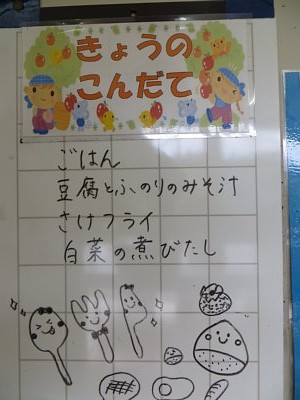 きょうの
こんだて
ごはん
豆腐とふのりのみそ汁
さけフライ
白菜の煮びたし